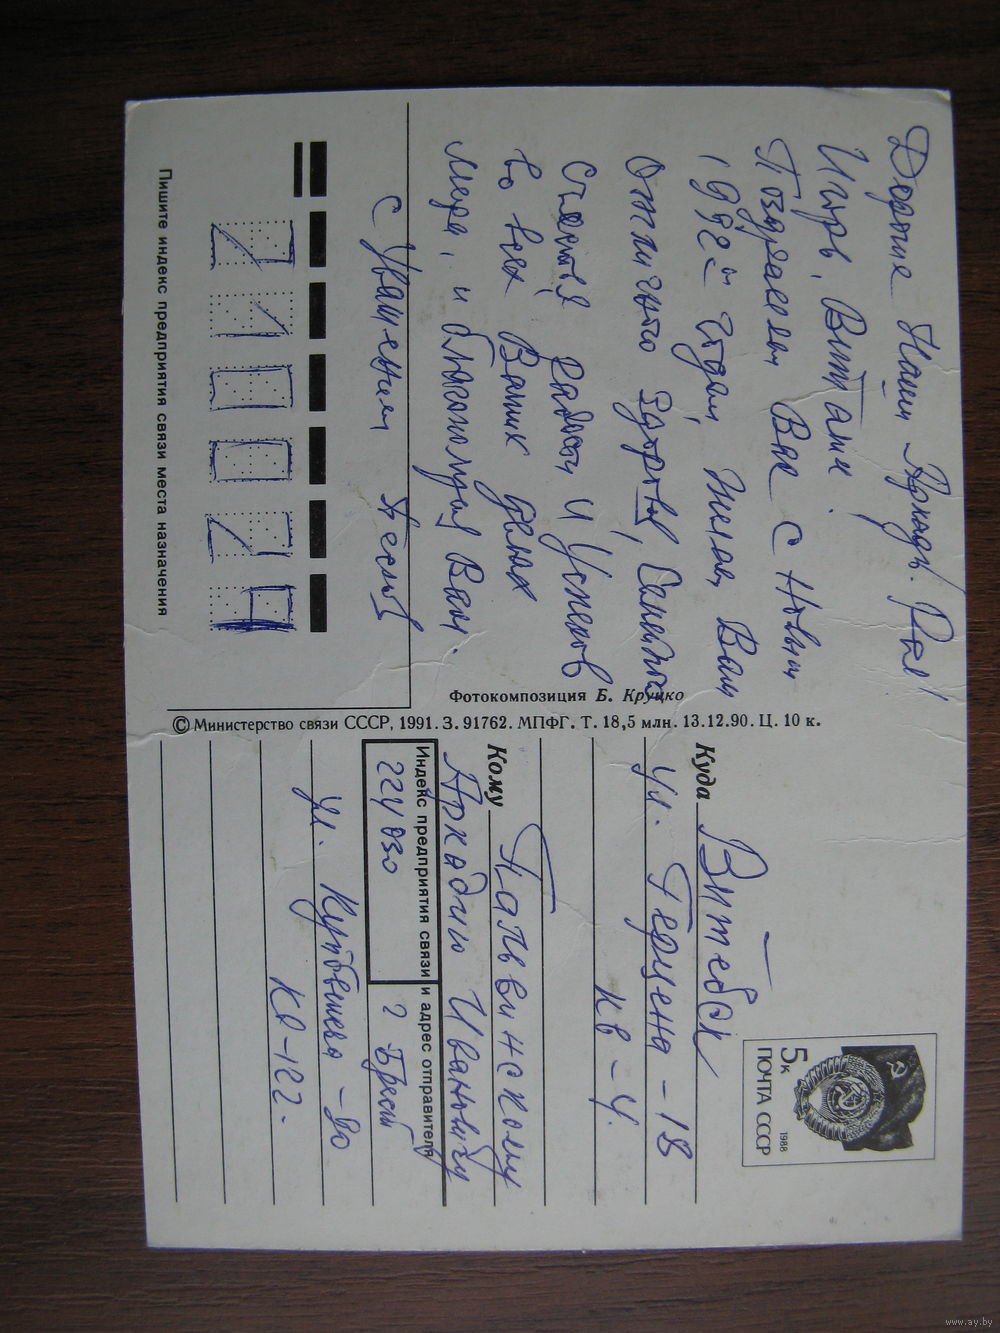 Дорогие Наши Аркадь. Рая!
Игорь, Виталик.
Поздравляем Вас с Новым
1992 годом, Желаем Вам
Отличного Здоровья,
Счастья, Радости И Успехов
во всех Ваших делах
Мира, и благополучия Вам.
с Уважением
Пишите индекс предприятия связи места назначения
Фотокомпозиция Б. Круцко
© Министерство связи СССР, 1991. З. 91762. МПФГ. Т. 18,5 млн. 13.12.90. Ц. 10 к.
5к
ПОЧТА СССР
1988
Куда Витебск
ул. Герцена - 18
кв - 4.
Кому Пальвинскому
Аркадию Ивановичу
Индекс предприятия связи и адрес отправителя
224030 г Брест
ул. Куйбышева -
кв-122.
www.ay.by